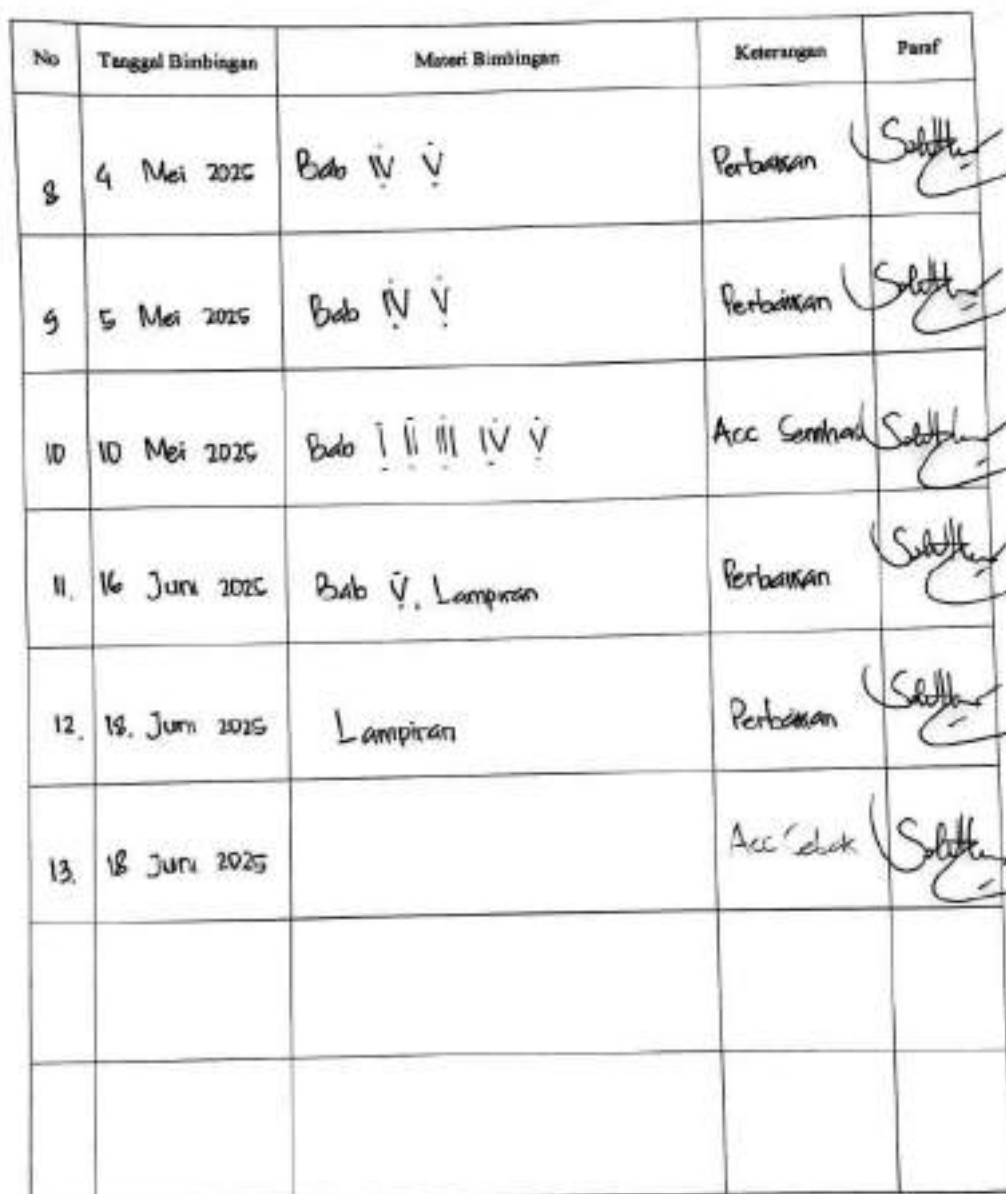 No Tanggal Bimbingan Materi Bimbingan Keterangan Paraf
8 4 Mei 2025 Bab IV V Perbaikan
9 5 Mei 2025 Bab IV V Perbaikan
10 10 Mei 2025 Bab I II III IV V Acc Semhas
11. 16 Juni 2025 Bab V, Lampiran Perbaikan
12. 18. Juni 2025 Lampiran Perbaikan
13. 18 Juni 2025 Acc